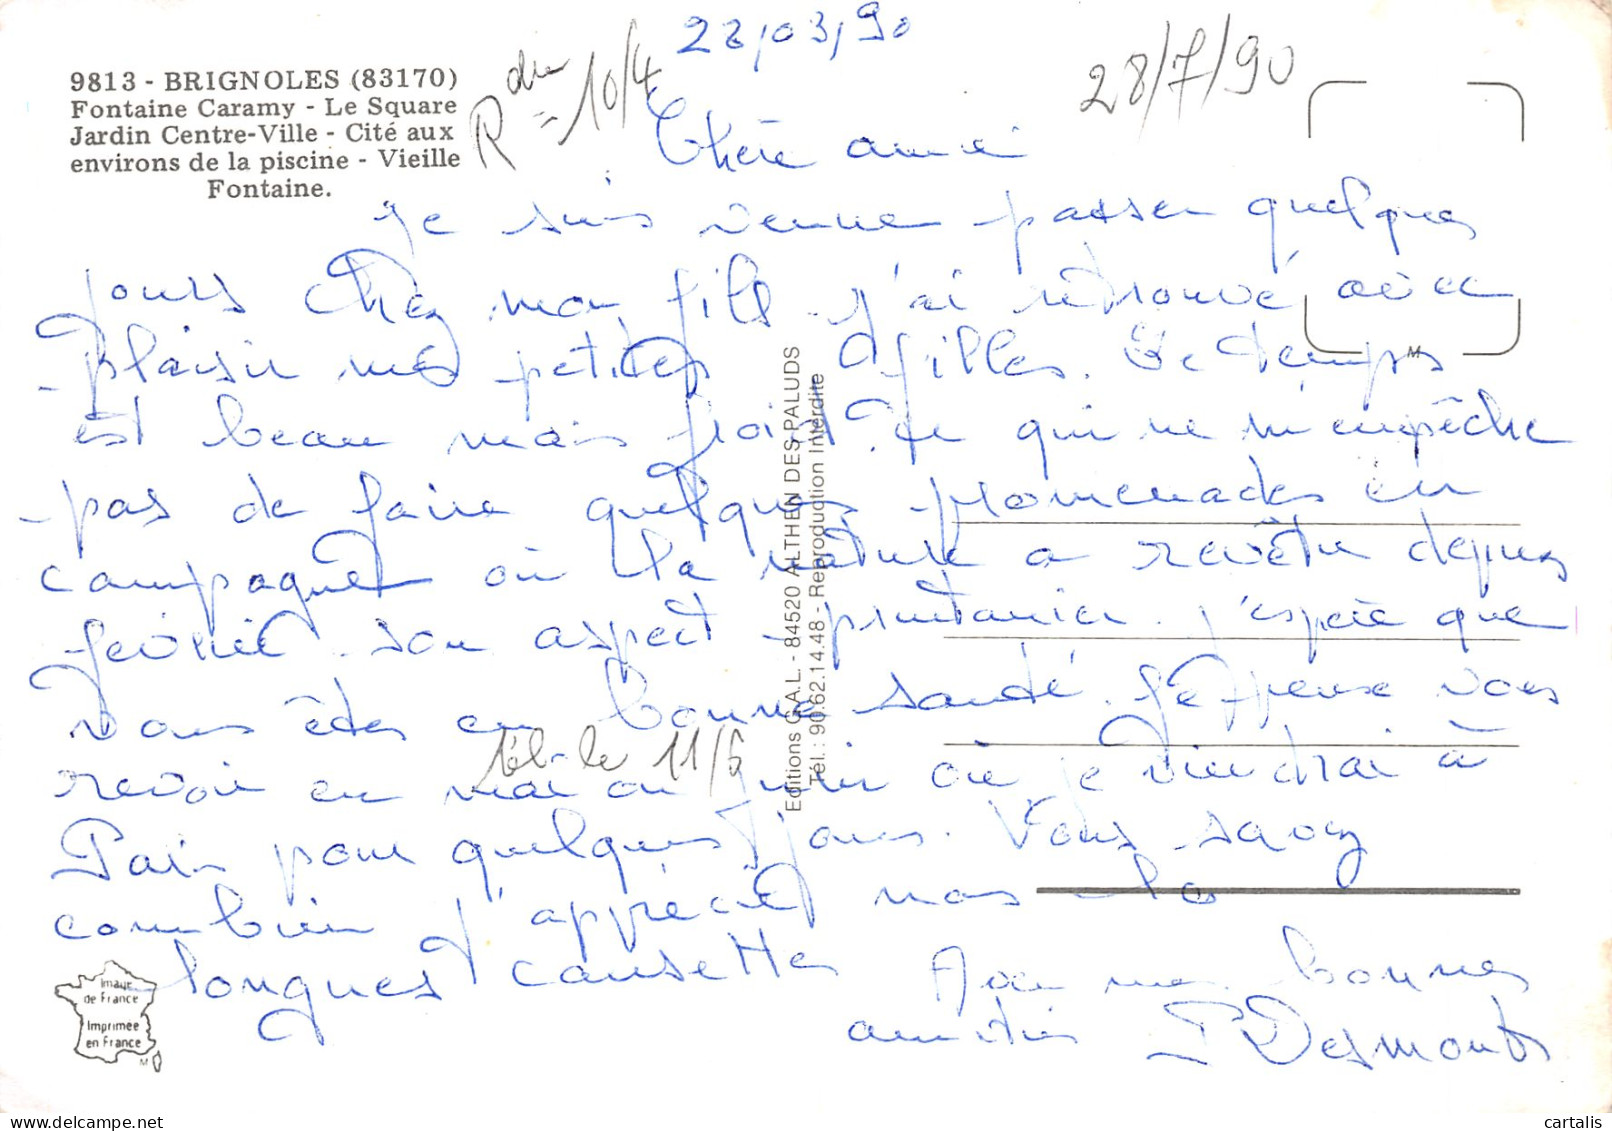 22/03/90
28/7/90
R due = 10/4
9813 - BRIGNOLES (83170)
Fontaine Caramy - Le Square
Jardin Centre-Ville - Cité aux
environs de la piscine - Vieille
Fontaine.
Chère amie
Je suis venue passer quelques
jours chez mon fils. J'ai retrouvé avec
plaisir mes petites filles. Le temps
est beau mais froid. Ce qui ne m'empêche
pas de faire quelques promenades en
campagne où la nature a revêtu depuis
février son aspect printanier. J'espère que
vous êtes en bonne santé. Je pense vous
revoir en mai ou juin où je viendrai à
tél. le 11/6
Paris pour quelques jours. Vous savez
combien j'apprécie nos
longues causettes
Avec mes bonnes
amitiés P Desmonts
Editions G.A.L. - 84520 ALTHEN DES PALUDS
Tél.: 90.62.14.48 - Reproduction Interdite
M
Image
de France
Imprimée
en France
M
cartalis.com